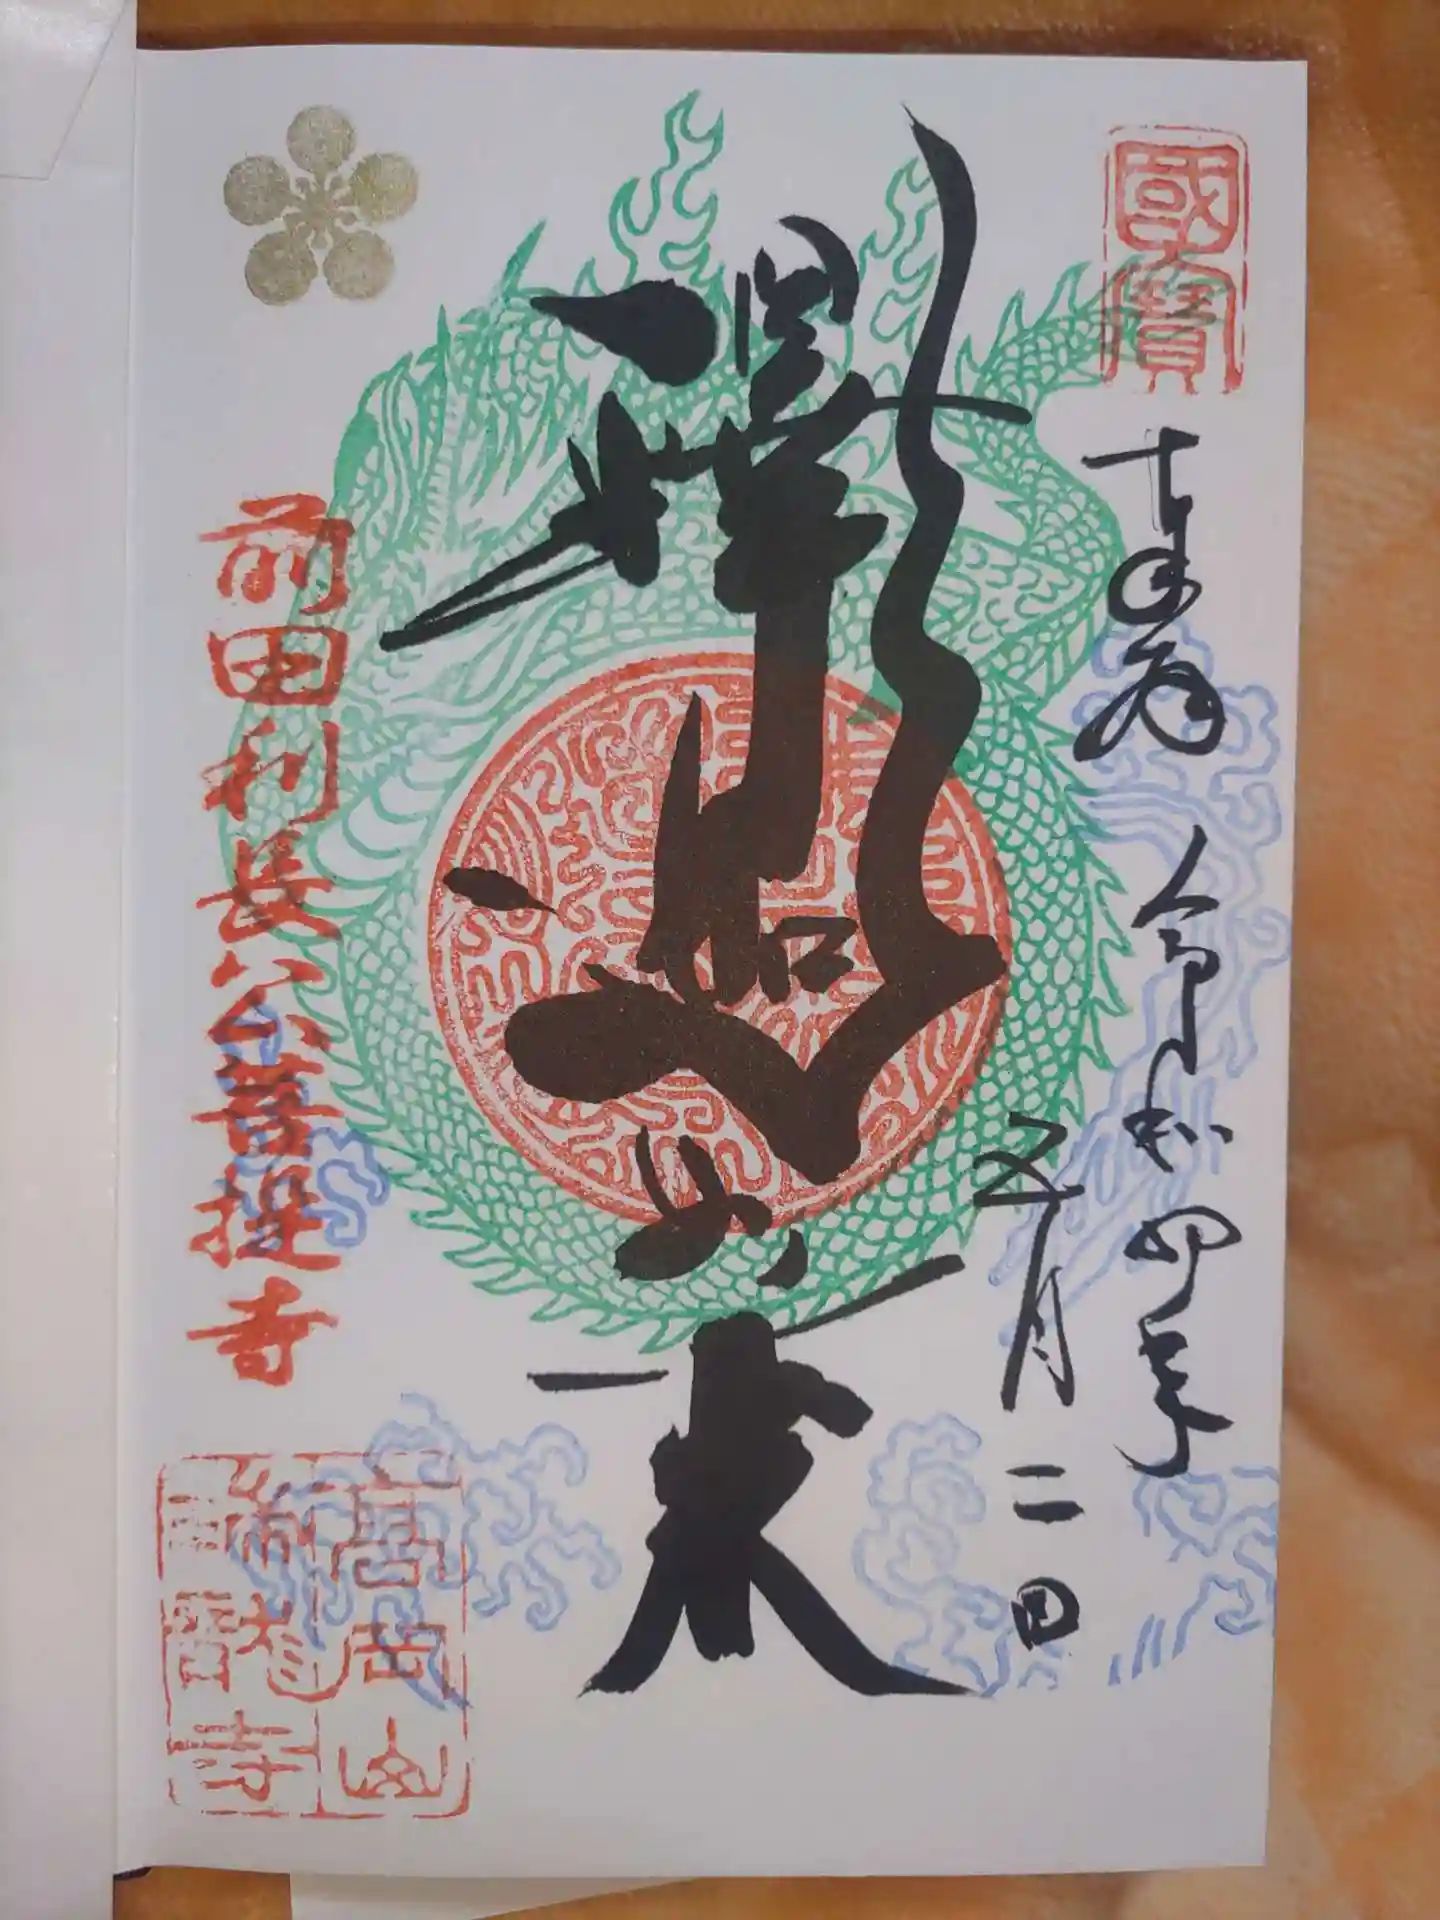 國寶
奉拝
令和四年
五月二日
釋迦如来
前田利長公菩提寺
高岡山
瑞龍寺